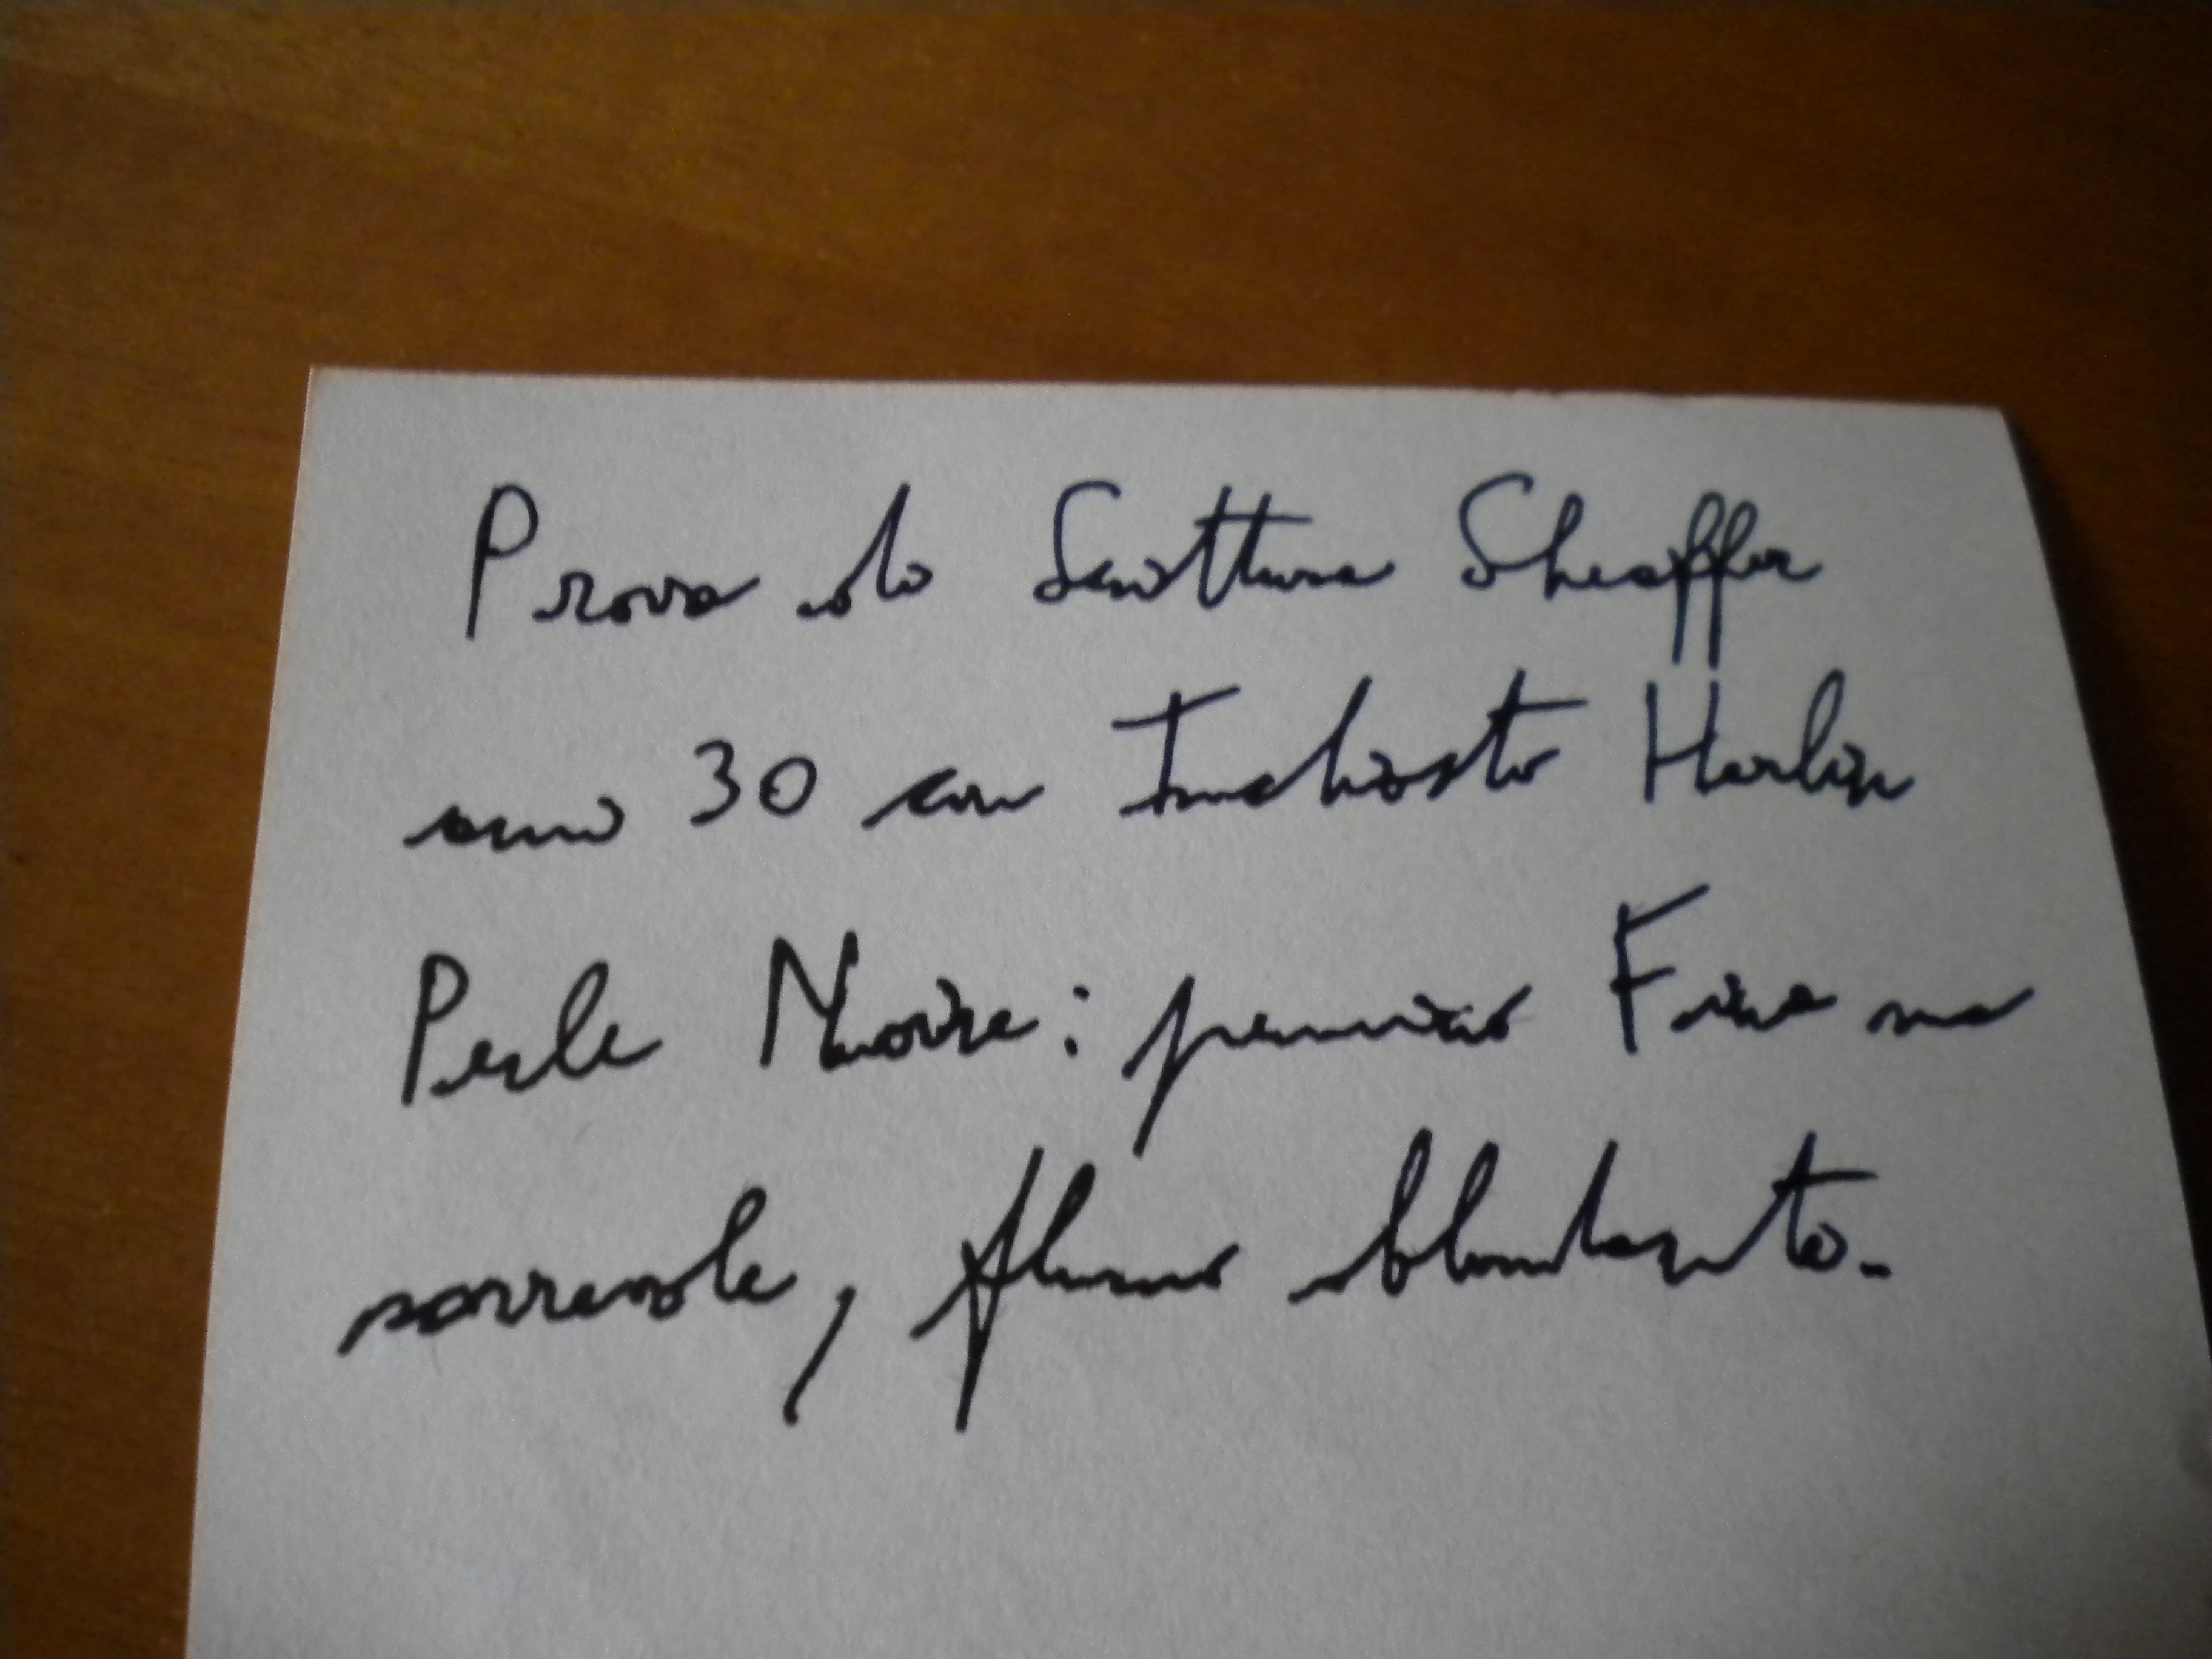 Prova di Scrittura Sheaffer
anni 30 con Inchiostro Herbin
Perle Noire: pennino Fine ma
scorrevole, flusso abbondante.